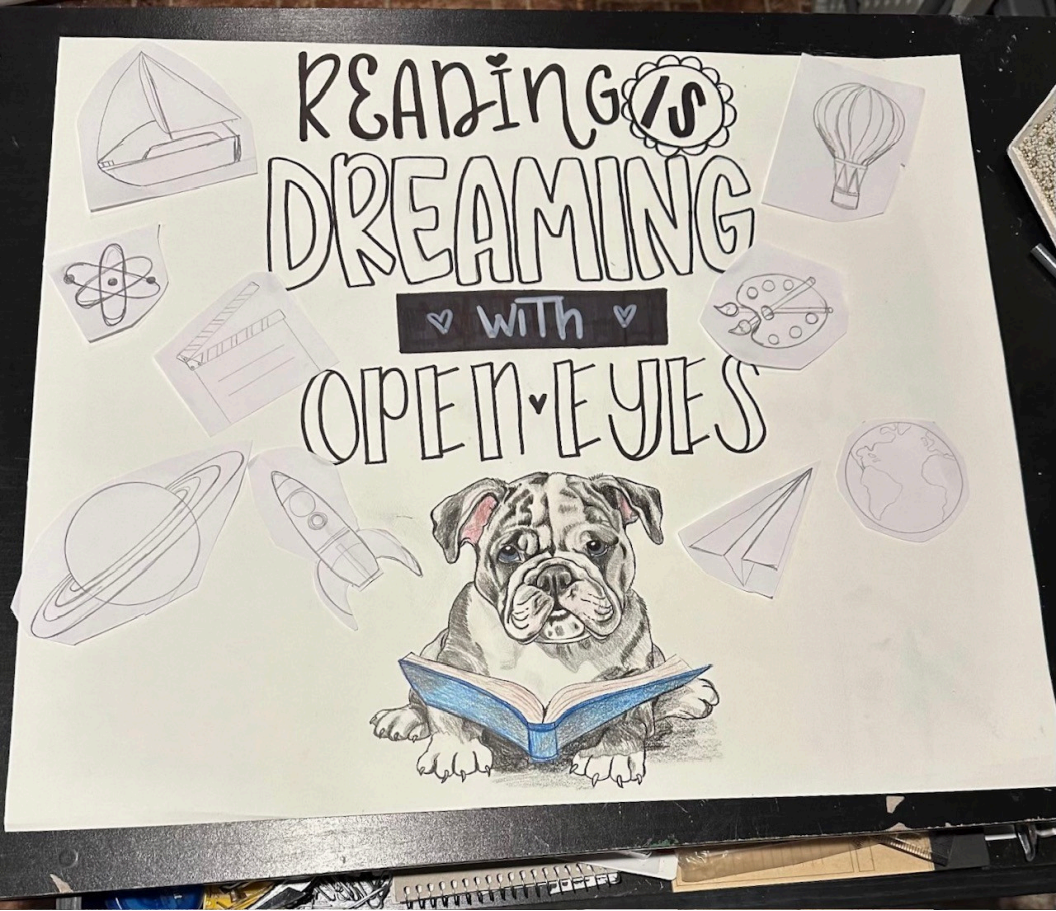 READiNG IS
DREAMING
WiTh
OPEN EYES